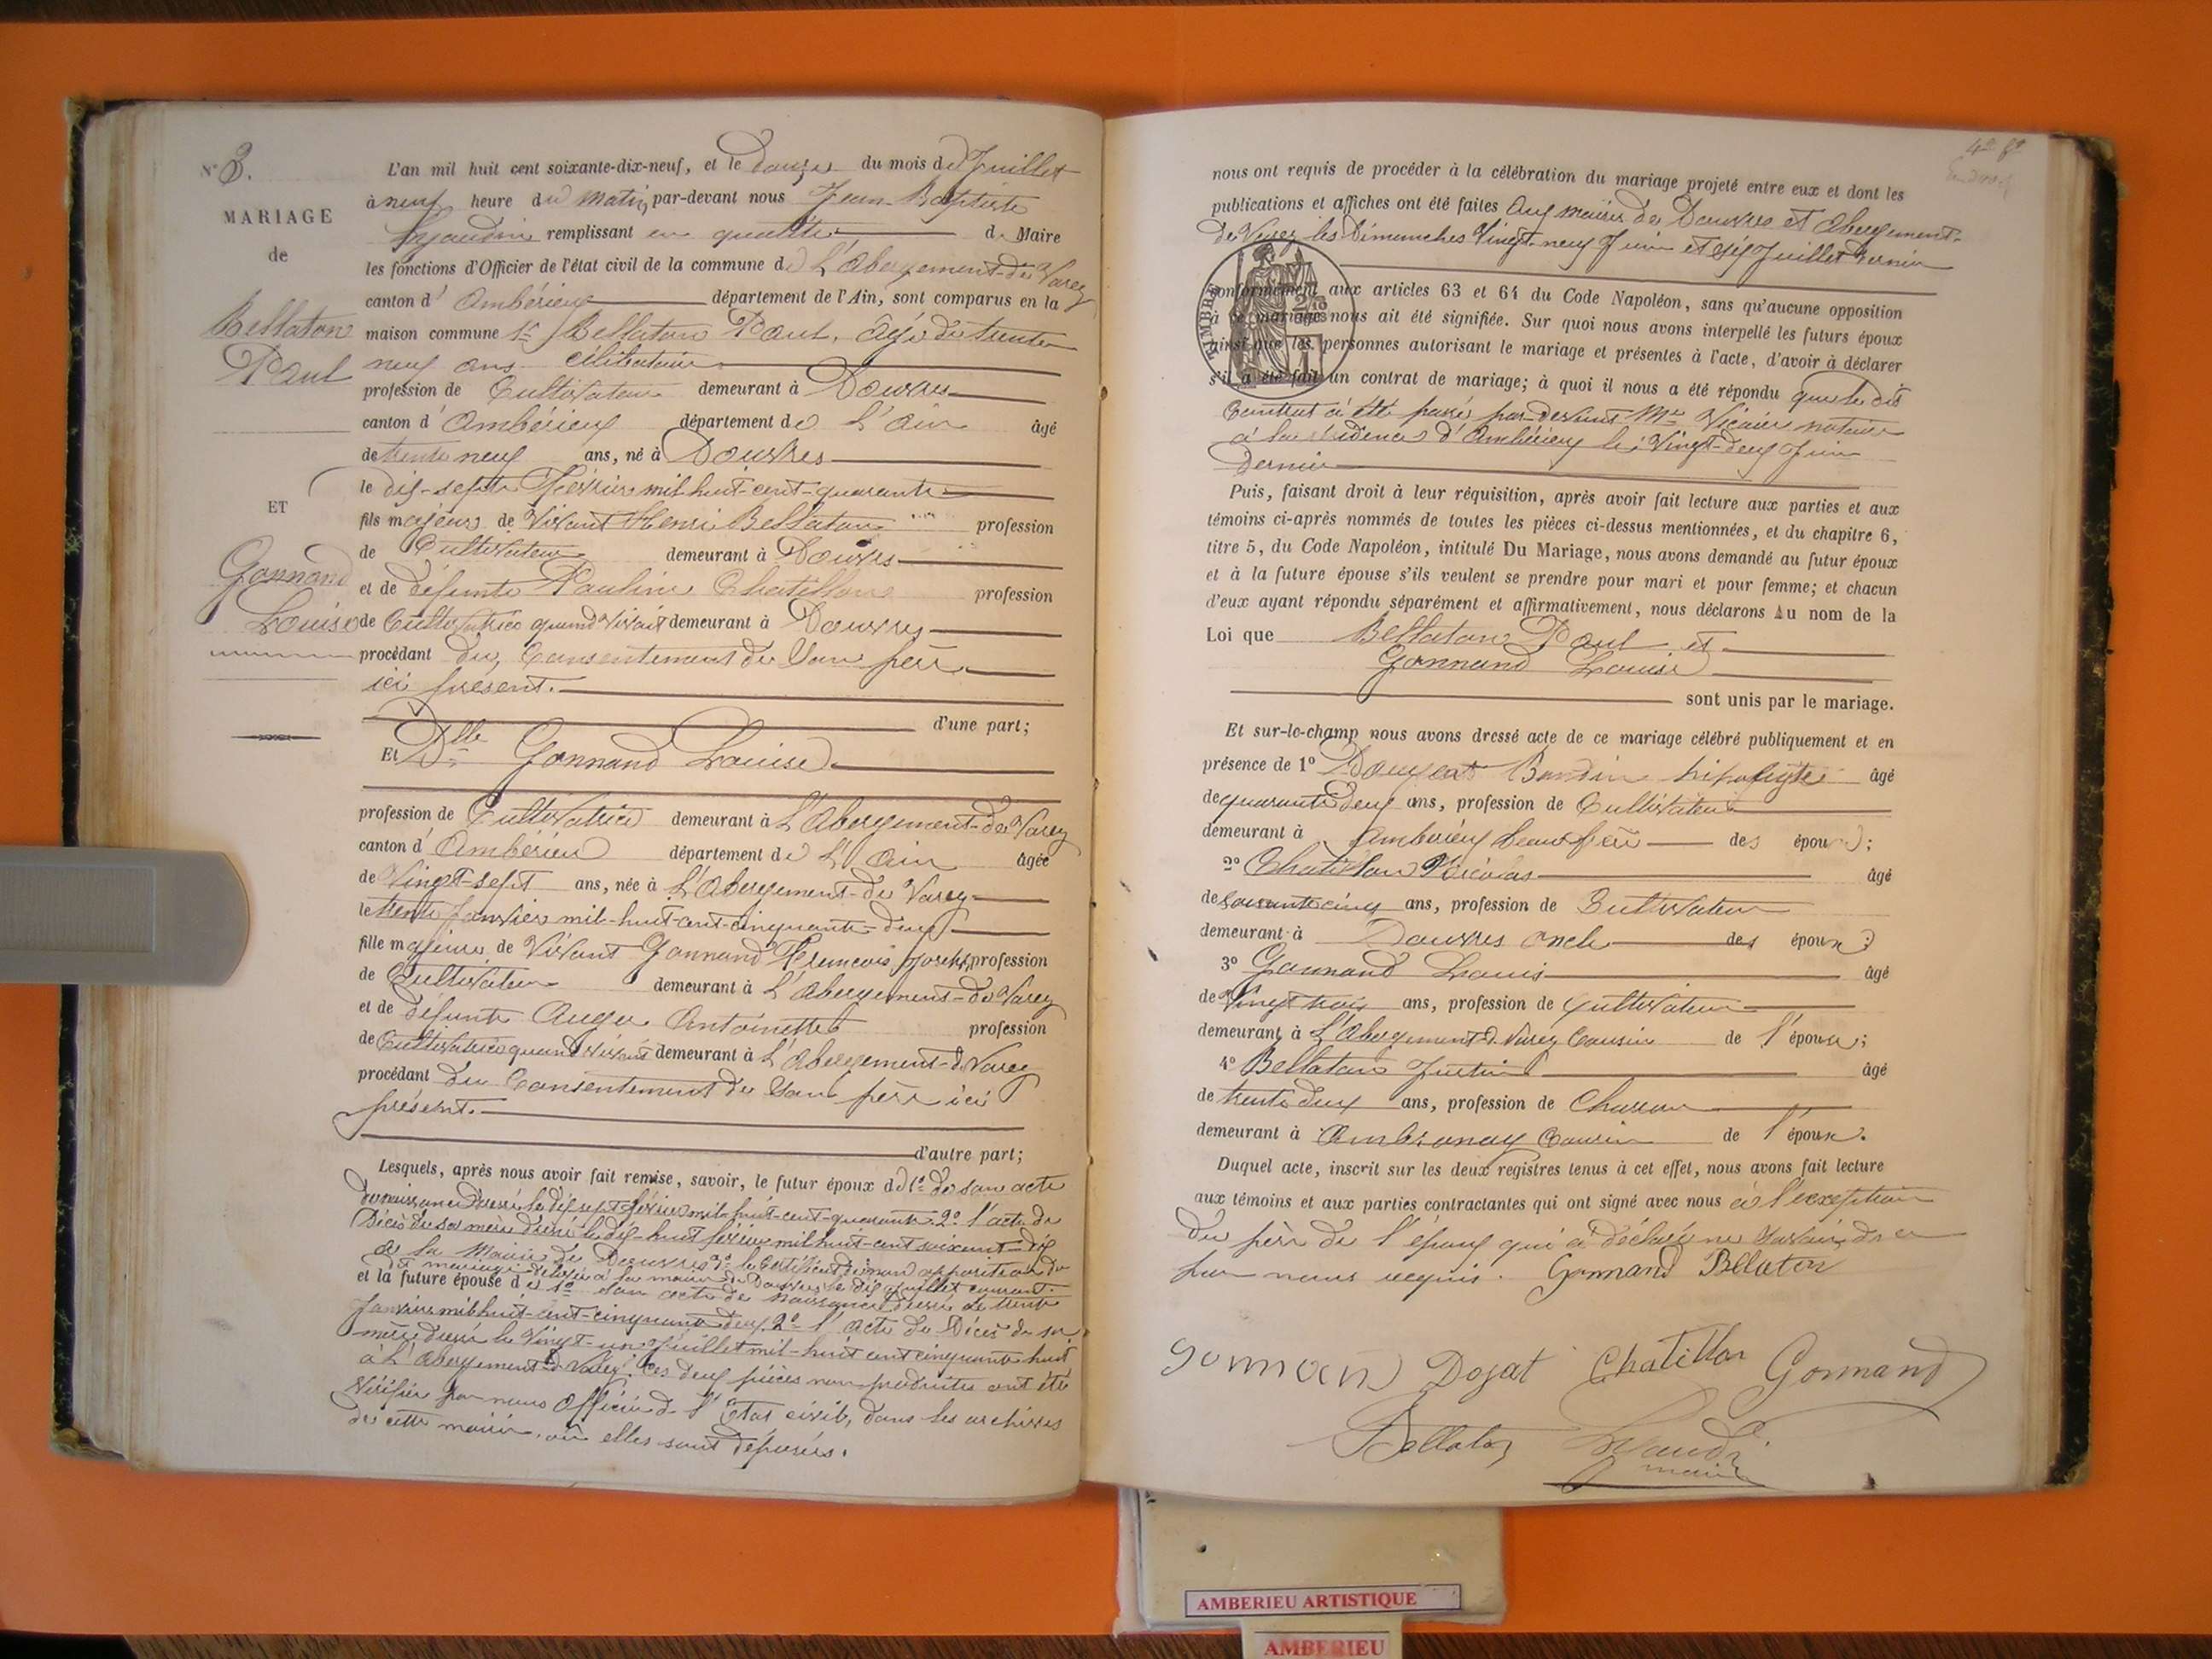 N° 3.
MARIAGE
de
Bellaton
Paul
ET
Gonnand
Louise
L'an mil huit cent soixante-dix-neuf, et le douze du mois de Juillet
à neuf heure du matin par-devant nous Jean Baptiste
remplissant en qualité de Maire
les fonctions d'Officier de l'état civil de la commune de L'Abergement-de-Varey
canton d' Ambérieux département de l'Ain, sont comparus en la
maison commune 1° Bellaton Paul, âgé de trente
neuf ans célibataire
profession de Cultivateur demeurant à Douvres
canton d' Ambérieux département de L'Ain âgé
de trente neuf ans, né à Douvres
le dix-sept Février mil huit-cent-quarante
fils majeur de Vivant Henri Bellaton profession
de Cultivateur demeurant à Douvres
et de défunte Pauline Chatillon profession
de Cultivatrice quand vivait demeurant à Douvres
procédant du Consentement de Son père
ici présent.
d'une part;
Et Dlle Gonnand Louise
profession de Cultivatrice demeurant à L'Abergement-de-Varey
canton d' Ambérieux département de L'Ain âgée
de Vingt-sept ans, née à L'Abergement-de-Varey
le trente Janvier mil-huit-cent-cinquante-deux
fille majeure de Vivant Gonnand François Joseph, profession
de Cultivateur demeurant à L'Abergement-de-Varey
et de défunte Auger Antoinette profession
de Cultivatrice quand vivait demeurant à L'Abergement-de-Varey
procédant du Consentement de Son père ici
présent.
d'autre part;
Lesquels, après nous avoir fait remise, savoir, le futur époux de 1° de son acte
de naissance dressé le dix sept février mil-huit-cent-quarante 2° l'acte de
Décès de sa mère dressé le dix-huit février mil huit-cent soixante-dix
à la Mairie de Douvres 3° le Certificat de non opposition du
dit mariage délivré à la mairie de Douvres le dix Juillet courant.
et la future épouse de 1° son acte de naissance dressé le trente
Janvier mil huit-cent-cinquante deux 2° l'acte de Décès de sa
mère dressé le Vingt-un Juillet mil-huit cent cinquante huit
à L'Abergement-de-Varey. Ces deux pièces non produites ont été
vérifiées par nous Officier de l'Etat civil, dans les archives
de cette mairie, où elles sont déposées.
nous ont requis de procéder à la célébration du mariage projeté entre eux et dont les
publications et affiches ont été faites aux mairies de Douvres et Abergement-
de-Varey les Dimanches Vingt-neuf Juin et six Juillet dernier
TIMBRE
conformément aux articles 63 et 64 du Code Napoléon, sans qu'aucune opposition
à ce mariage nous ait été signifiée. Sur quoi nous avons interpellé les futurs époux
ainsi que les personnes autorisant le mariage et présentes à l'acte, d'avoir à déclarer
s'il a été fait un contrat de mariage; à quoi il nous a été répondu que le dit
Contrat a été passé par-devant Me Vicaire notaire
à la résidence d'Ambérieux le Vingt-deux Juin
dernier
Puis, faisant droit à leur réquisition, après avoir fait lecture aux parties et aux
témoins ci-après nommés de toutes les pièces ci-dessus mentionnées, et du chapitre 6,
titre 5, du Code Napoléon, intitulé Du Mariage, nous avons demandé au futur époux
et à la future épouse s'ils veulent se prendre pour mari et pour femme; et chacun
d'eux ayant répondu séparément et affirmativement, nous déclarons Au nom de la
Loi que Bellaton Paul et
Gonnand Louise
sont unis par le mariage.
Et sur-le-champ nous avons dressé acte de ce mariage célébré publiquement et en
présence de 1° âgé
de quarante deux ans, profession de Cultivateur
demeurant à Ambérieux beau frère des époux;
2° Chatillon Nicolas âgé
de soixante cinq ans, profession de Cultivateur
demeurant à Douvres oncle des époux;
3° Gonnand Louis âgé
de Vingt trois ans, profession de Cultivateur
demeurant à L'Abergement-de-Varey Cousin de l'épouse;
4° Bellaton Justin âgé
de trente deux ans, profession de Charron
demeurant à Ambronay Cousin de l'époux.
Duquel acte, inscrit sur les deux registres tenus à cet effet, nous avons fait lecture
aux témoins et aux parties contractantes qui ont signé avec nous à l'exception
du père de l'époux qui a déclaré ne savoir de ce
par nous requis. Gonnand Bellaton
gonnand Dojat Chatillon Gonnand
Bellaton
maire
AMBERIEU ARTISTIQUE
AMBERIEU